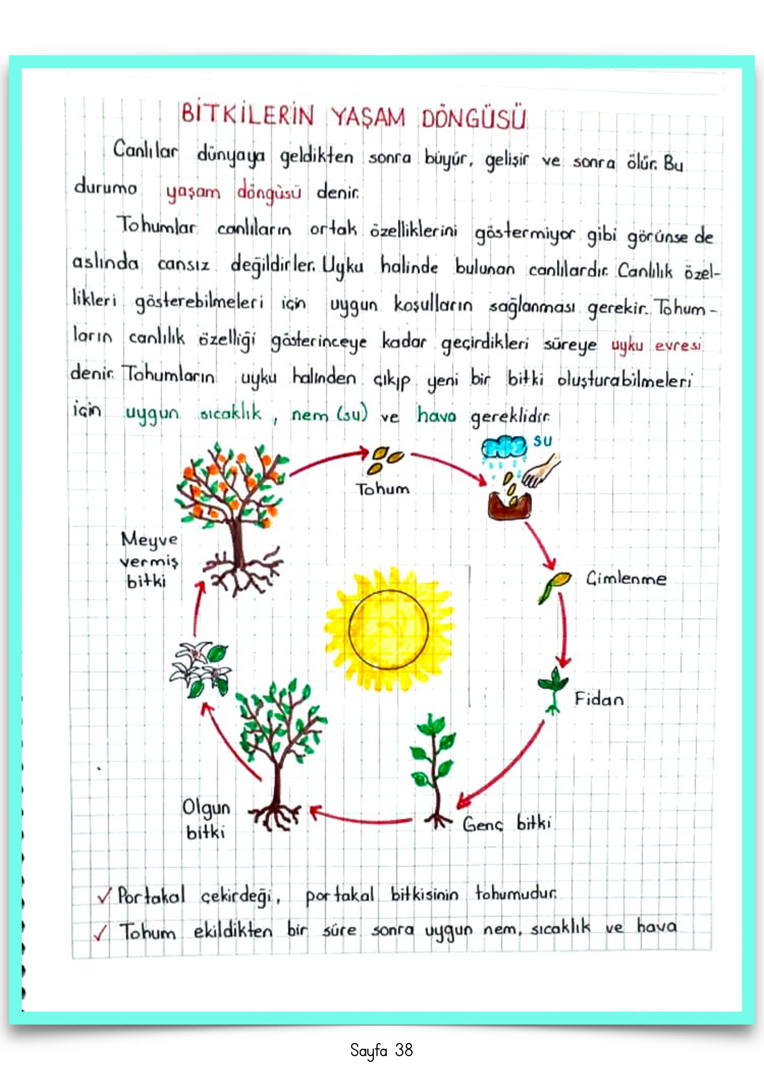 BİTKİLERİN YAŞAM DÖNGÜSÜ
Canlılar dünyaya geldikten sonra büyür, gelişir ve sonra ölür. Bu
duruma yaşam döngüsü denir.
Tohumlar canlıların ortak özelliklerini göstermiyor gibi görünse de
aslında cansız değildirler. Uyku halinde bulunan canlılardır. Canlılık özel-
likleri gösterebilmeleri için uygun koşulların sağlanması gerekir. Tohum-
ların canlılık özelliği gösterinceye kadar geçirdikleri süreye uyku evresi
denir. Tohumların uyku halinden çıkıp yeni bir bitki oluşturabilmeleri
için uygun sıcaklık, nem (su) ve hava gereklidir.
su
Tohum
Meyve
vermiş
bitki
Çimlenme
Fidan
Olgun
bitki
Genç bitki
✓ Portakal çekirdeği, portakal bitkisinin tohumudur.
✓ Tohum ekildikten bir süre sonra uygun nem, sıcaklık ve hava
Sayfa 38